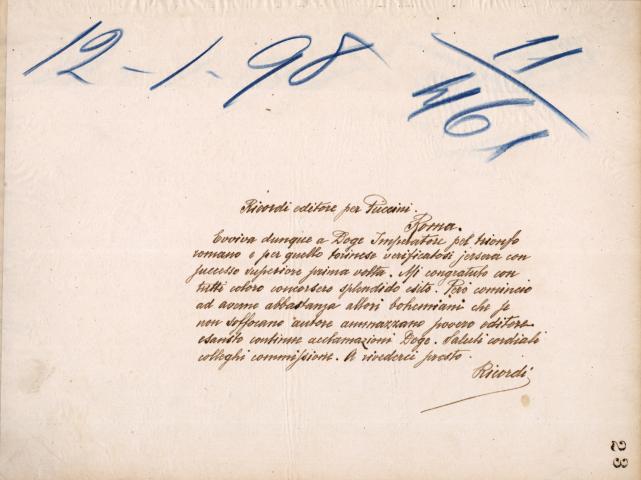 12-1-98
11/461
Ricordi editore per Puccini.
Roma.
Evviva dunque a Doge Imperatore pel trionfo
romano e per quello torinese verificatosi jersera con
successo superiore prima volta. Mi congratulo con
tutti coloro concorsero splendido esito. Però comincio
ad averne abbastanza allori bohemiani che se
non soffocano autore ammazzano povero editore
esausto continue acclamazioni Doge. Saluti cordiali
colleghi commissione. A rivederci presto
Ricordi
23